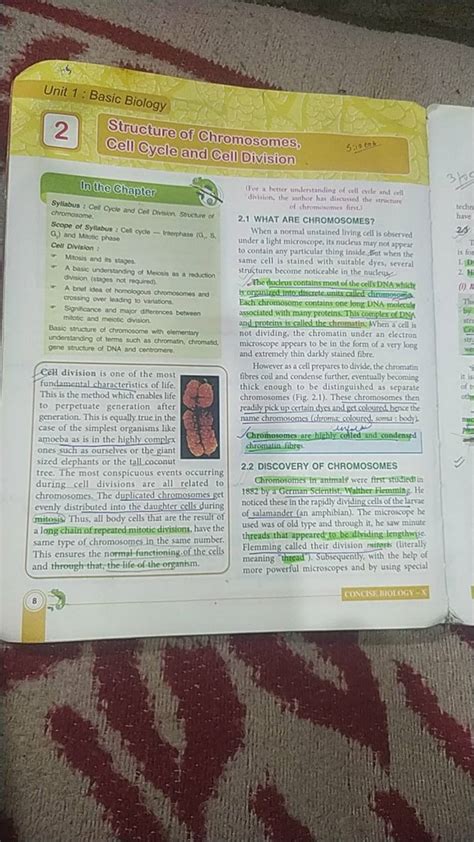 Unit 1 : Basic Biology
2
Structure of Chromosomes,
Cell Cycle and Cell Division
In the Chapter
Syllabus : Cell Cycle and Cell Division. Structure of
chromosome.
Scope of Syllabus : Cell cycle — Interphase (G₁, S,
G₂) and Mitotic phase
Cell Division :
Mitosis and its stages.
A basic understanding of Meiosis as a reduction
division (stages not required).
A brief idea of homologous chromosomes and
crossing over leading to variations.
Significance and major differences between
mitotic and meiotic division.
Basic structure of chromosome with elementary
understanding of terms such as chromatin, chromatid,
gene structure of DNA and centromere.
Cell division is one of the most
fundamental characteristics of life.
This is the method which enables life
to perpetuate generation after
generation. This is equally true in the
case of the simplest organisms like
amoeba as is in the highly complex
ones such as ourselves or the giant
sized elephants or the tall coconut
tree. The most conspicuous events occurring
during cell divisions are all related to
chromosomes. The duplicated chromosomes get
evenly distributed into the daughter cells during
mitosis. Thus, all body cells that are the result of
a long chain of repeated mitotic divisions, have the
same type of chromosomes in the same number.
This ensures the normal functioning of the cells
and through that, the life of the organism.
(For a better understanding of cell cycle and cell
division, the author has discussed the structure
of chromosomes first.)
2.1 WHAT ARE CHROMOSOMES?
When a normal unstained living cell is observed
under a light microscope, its nucleus may not appear
to contain any particular thing inside. But when the
same cell is stained with suitable dyes, several
structures become noticeable in the nucleus.
The nucleus contains most of the cell's DNA which
is organized into discrete units called chromosomes.
Each chromosome contains one long DNA molecule
associated with many proteins. This complex of DNA
and proteins is called the chromatin. When a cell is
not dividing, the chromatin under an electron
microscope appears to be in the form of a very long
and extremely thin darkly stained fibre.
However as a cell prepares to divide, the chromatin
fibres coil and condense further, eventually becoming
thick enough to be distinguished as separate
chromosomes (Fig. 2.1). These chromosomes then
readily pick up certain dyes and get coloured, hence the
name chromosomes (chroma: coloured, soma : body).
Chromosomes are highly coiled and condensed
chromatin fibres.
2.2 DISCOVERY OF CHROMOSOMES
Chromosomes in animals were first studied in
1882 by a German Scientist, Walther Flemming. He
noticed these in the rapidly dividing cells of the larvae
of salamander (an amphibian). The microscope he
used was of old type and through it, he saw minute
threads that appeared to be dividing lengthwise.
Flemming called their division mitosis (literally
meaning "thread"). Subsequently, with the help of
more powerful microscopes and by using special
8
CONCISE BIOLOGY – X